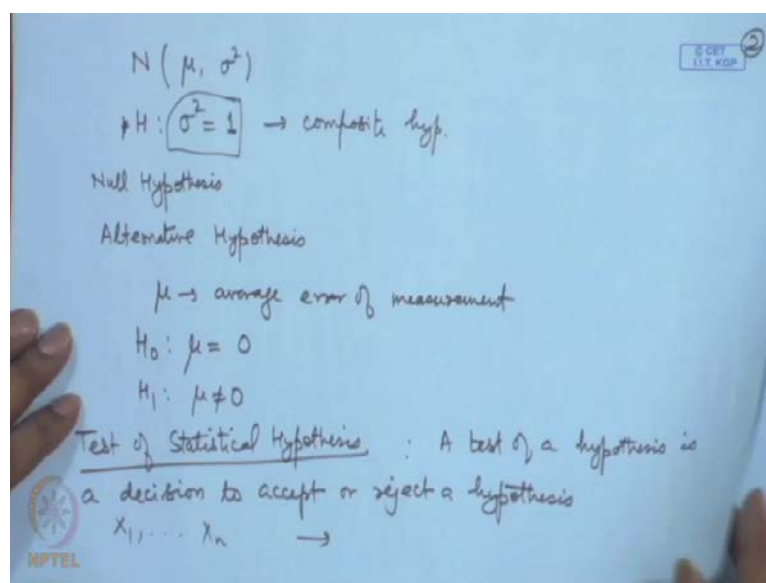 N ( μ, σ²)
© CET
I.I.T. KGP
2
H : σ² = 1 → composite hyp.
Null Hypothesis
Alternative Hypothesis
μ → average error of measurement
H₀ : μ = 0
H₁ : μ ≠ 0
Test of Statistical Hypothesis : A test of a hypothesis is
a decision to accept or reject a hypothesis
X₁, .... Xₙ →
NPTEL